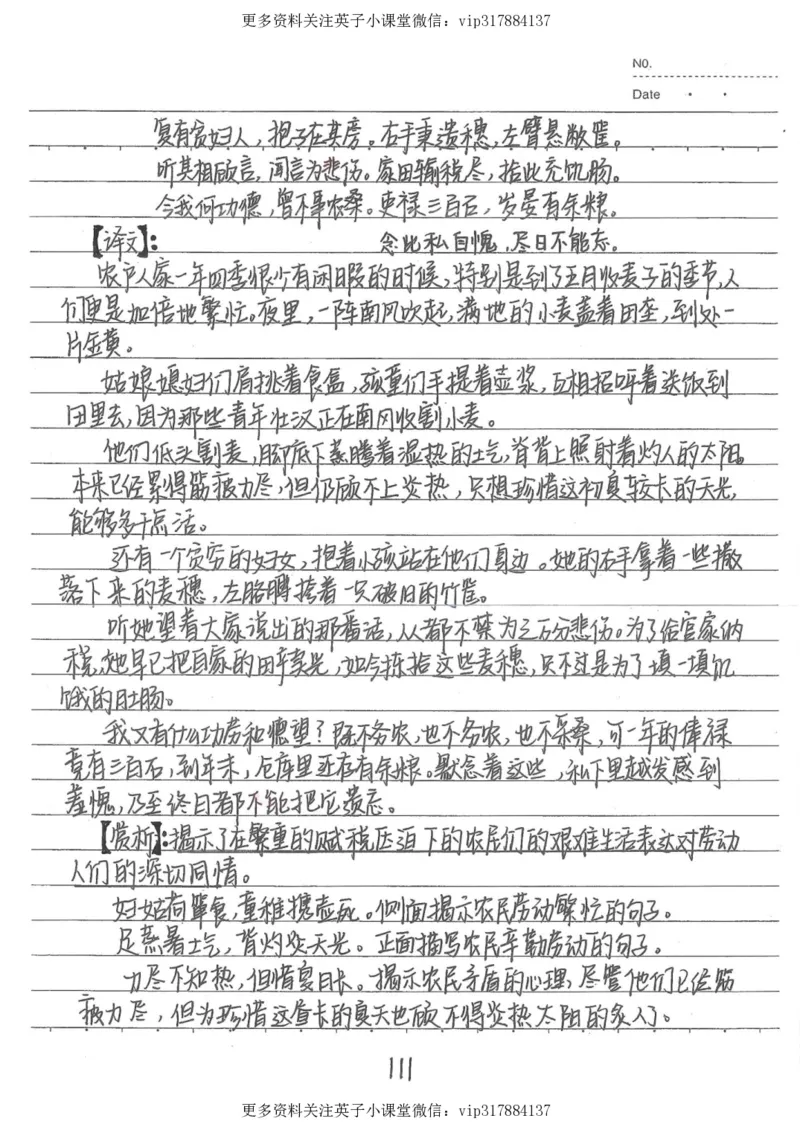 更多资料关注英子小课堂微信：vip317884137
NO.
Date
复有贫妇人，抱子在其旁。右手秉遗穗，左臂悬敝筐。
听其相顾言，闻言为悲伤。家田输税尽，拾此充饥肠。
今我何功德，曾不事农桑。吏禄三百石，岁晏有余粮。
【译文】：念此私自愧，尽日不能忘。
农户人家一年四季很少有闲暇的时候，特别是到了五月收麦子的季节，人
们便是加倍地繁忙。夜里，一阵南风吹起，满地的小麦盖着田垄，到处一
片金黄。
姑娘媳妇们肩挑着食盒，孩童们手提着壶浆，互相招呼着送饭到
田里去，因为那些青年壮汉正在南冈收割小麦。
他们低头割麦，脚底下蒸腾着湿热的土气，脊背上照射着灼人的太阳。
本来已经累得筋疲力尽，但仍顾不上炎热，只想珍惜这初夏较长的天光，
能够多干点活。
还有一个贫穷的妇女，抱着小孩站在他们身边。她的右手拿着一些撒
落下来的麦穗，左胳膊挎着一只破旧的竹筐。
听她望着大家说出的那番话，人都不禁为之万分悲伤。为了给官家纳
税，她早已把自家的田卖光，如今拣拾这些麦穗，只不过是为了填一填饥
饿的肚肠。
我又有什么功劳和德望？既不务农，也不务农，也不采桑，可一年的俸禄
竟有三百石，到年末，仓库里还存有余粮。默念着这些，私下里越发感到
羞愧，乃至终日都不能把它遗忘。
【赏析】：揭示了在繁重的赋税压迫下的农民们的艰难生活表达对劳动
人们的深切同情。
妇姑荷箪食，童稚携壶死。侧面揭示农民劳动繁忙的句子。
足蒸暑土气，背灼炎天光。正面描写农民辛勤劳动的句子。
力尽不知热，但惜夏日长。揭示农民矛盾的心理，尽管他们已经筋
疲力尽，但为珍惜这昼长的夏天也顾不得炎热太阳的炙人了。
111
更多资料关注英子小课堂微信：vip317884137